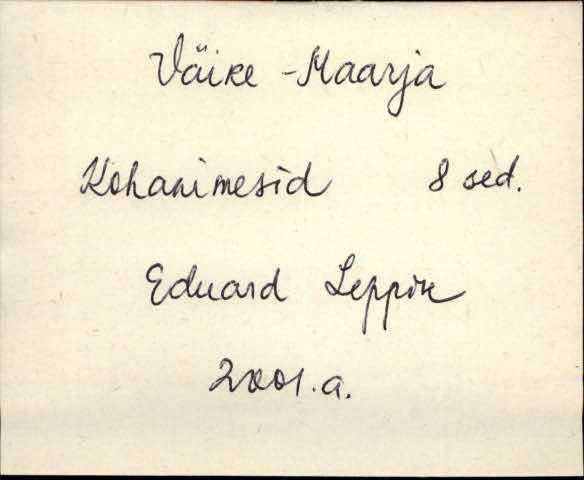 Väike-Maarja
Kohanimesid 8 sed.
Eduard Leppik
2001.a.